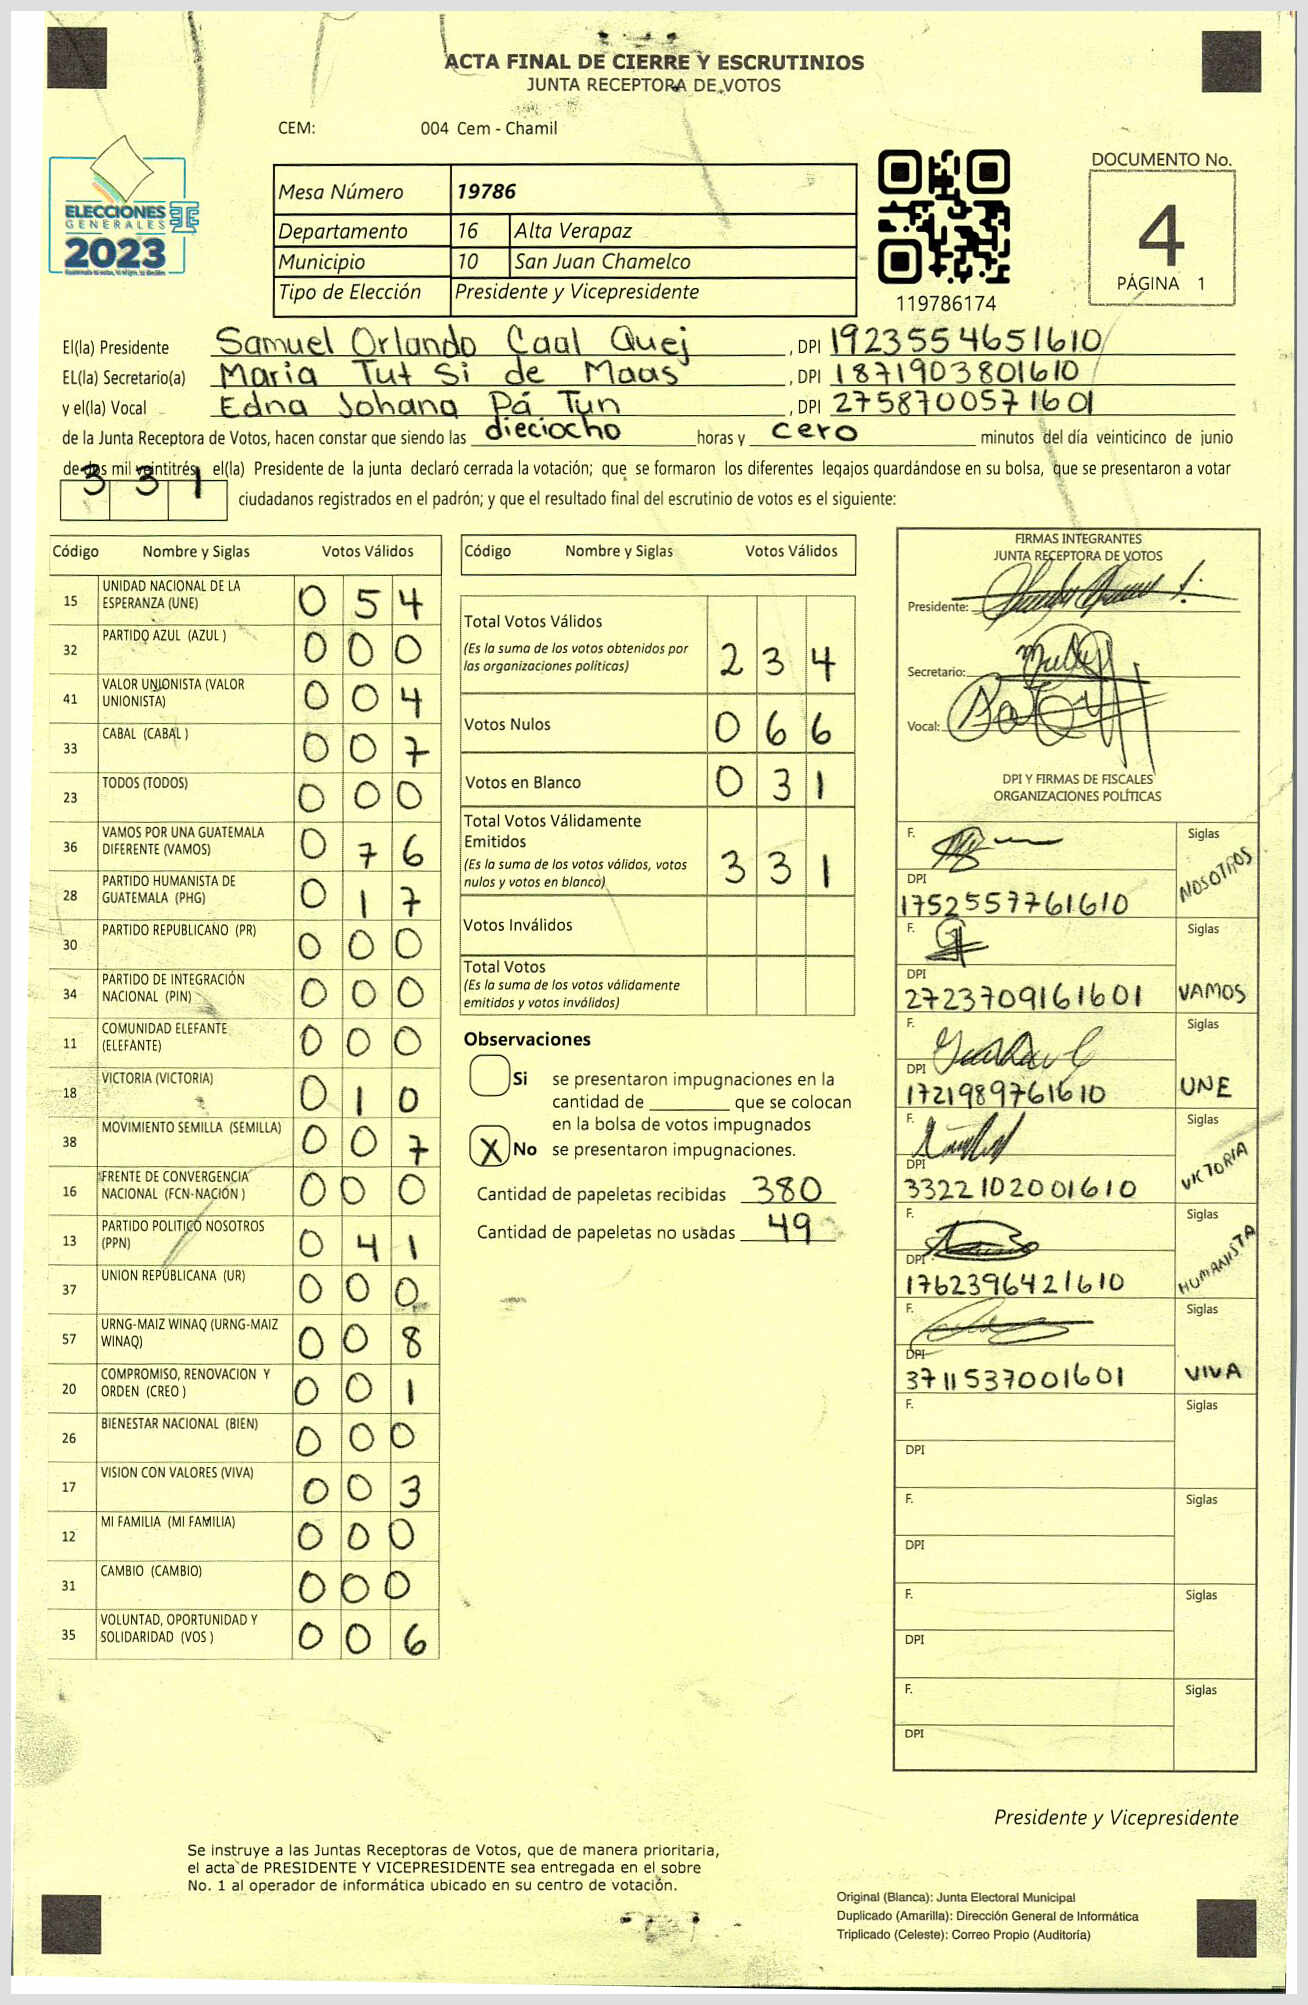 ACTA FINAL DE CIERRE Y ESCRUTINIOS
JUNTA RECEPTORA DE VOTOS
CEM: 004 Cem - Chamil
ELECCIONES
GENERALES
2023
Mesa Número 19786
Departamento 16 Alta Verapaz
Municipio 10 San Juan Chamelco
Tipo de Elección Presidente y Vicepresidente
119786174
DOCUMENTO No.
4
PÁGINA 1
El(la) Presidente Samuel Orlando Caal Quej , DPI 1923554651610
EL(la) Secretario(a) Maria Tut Si de Maas , DPI 1871903801610
y el(la) Vocal Edna Johana Pá Tun , DPI 2758700571601
de la Junta Receptora de Votos, hacen constar que siendo las dieciocho horas y cero minutos del día veinticinco de junio
de dos mil veintitrés, el(la) Presidente de la junta declaró cerrada la votación; que se formaron los diferentes legajos quardándose en su bolsa, que se presentaron a votar
331 ciudadanos registrados en el padrón; y que el resultado final del escrutinio de votos es el siguiente:
Código Nombre y Siglas Votos Válidos
15 UNIDAD NACIONAL DE LA ESPERANZA (UNE) 0 5 4
32 PARTIDO AZUL (AZUL ) 0 0 0
41 VALOR UNIONISTA (VALOR UNIONISTA) 0 0 4
33 CABAL (CABAL ) 0 0 7
23 TODOS (TODOS) 0 0 0
36 VAMOS POR UNA GUATEMALA DIFERENTE (VAMOS) 0 7 6
28 PARTIDO HUMANISTA DE GUATEMALA (PHG) 0 1 7
30 PARTIDO REPUBLICANO (PR) 0 0 0
34 PARTIDO DE INTEGRACIÓN NACIONAL (PIN) 0 0 0
11 COMUNIDAD ELEFANTE (ELEFANTE) 0 0 0
18 VICTORIA (VICTORIA) 0 1 0
38 MOVIMIENTO SEMILLA (SEMILLA) 0 0 7
16 FRENTE DE CONVERGENCIA NACIONAL (FCN-NACIÓN ) 0 0 0
13 PARTIDO POLITICO NOSOTROS (PPN) 0 4 1
37 UNION REPUBLICANA (UR) 0 0 0
57 URNG-MAIZ WINAQ (URNG-MAIZ WINAQ) 0 0 8
20 COMPROMISO, RENOVACION Y ORDEN (CREO ) 0 0 1
26 BIENESTAR NACIONAL (BIEN) 0 0 0
17 VISION CON VALORES (VIVA) 0 0 3
12 MI FAMILIA (MI FAMILIA) 0 0 0
31 CAMBIO (CAMBIO) 0 0 0
35 VOLUNTAD, OPORTUNIDAD Y SOLIDARIDAD (VOS ) 0 0 6
Código Nombre y Siglas Votos Válidos
Total Votos Válidos
(Es la suma de los votos obtenidos por
las organizaciones politicas) 2 3 4
Votos Nulos 0 6 6
Votos en Blanco 0 3 1
Total Votos Válidamente
Emitidos
(Es la suma de los votos válidos, votos
nulos y votos en blanco) 3 3 1
Votos Inválidos
Total Votos
(Es la suma de los votos válidamente
emitidos y votos inválidos)
Observaciones
Si se presentaron impugnaciones en la
cantidad de ________ que se colocan
en la bolsa de votos impugnados
X No se presentaron impugnaciones.
Cantidad de papeletas recibidas 380
Cantidad de papeletas no usadas 49
FIRMAS INTEGRANTES
JUNTA RECEPTORA DE VOTOS
Presidente:
Secretario:
Vocal:
DPI Y FIRMAS DE FISCALES
ORGANIZACIONES POLÍTICAS
F. Siglas
DPI NOSOTROS
1752557761610
F. Siglas
DPI
2723709161601 VAMOS
F. Siglas
DPI
1721989761610 UNE
F. Siglas
DPI VICTORIA
3322102001610
F. Siglas
DPI HUMANISTA
1762396421610
F. Siglas
DPI
3711537001601 VIVA
F. Siglas
DPI
F. Siglas
DPI
F. Siglas
DPI
F. Siglas
DPI
Presidente y Vicepresidente
Se instruye a las Juntas Receptoras de Votos, que de manera prioritaria,
el acta de PRESIDENTE Y VICEPRESIDENTE sea entregada en el sobre
No. 1 al operador de informática ubicado en su centro de votación.
Original (Blanca): Junta Electoral Municipal
Duplicado (Amarilla): Dirección General de Informática
Triplicado (Celeste): Correo Propio (Auditoría)